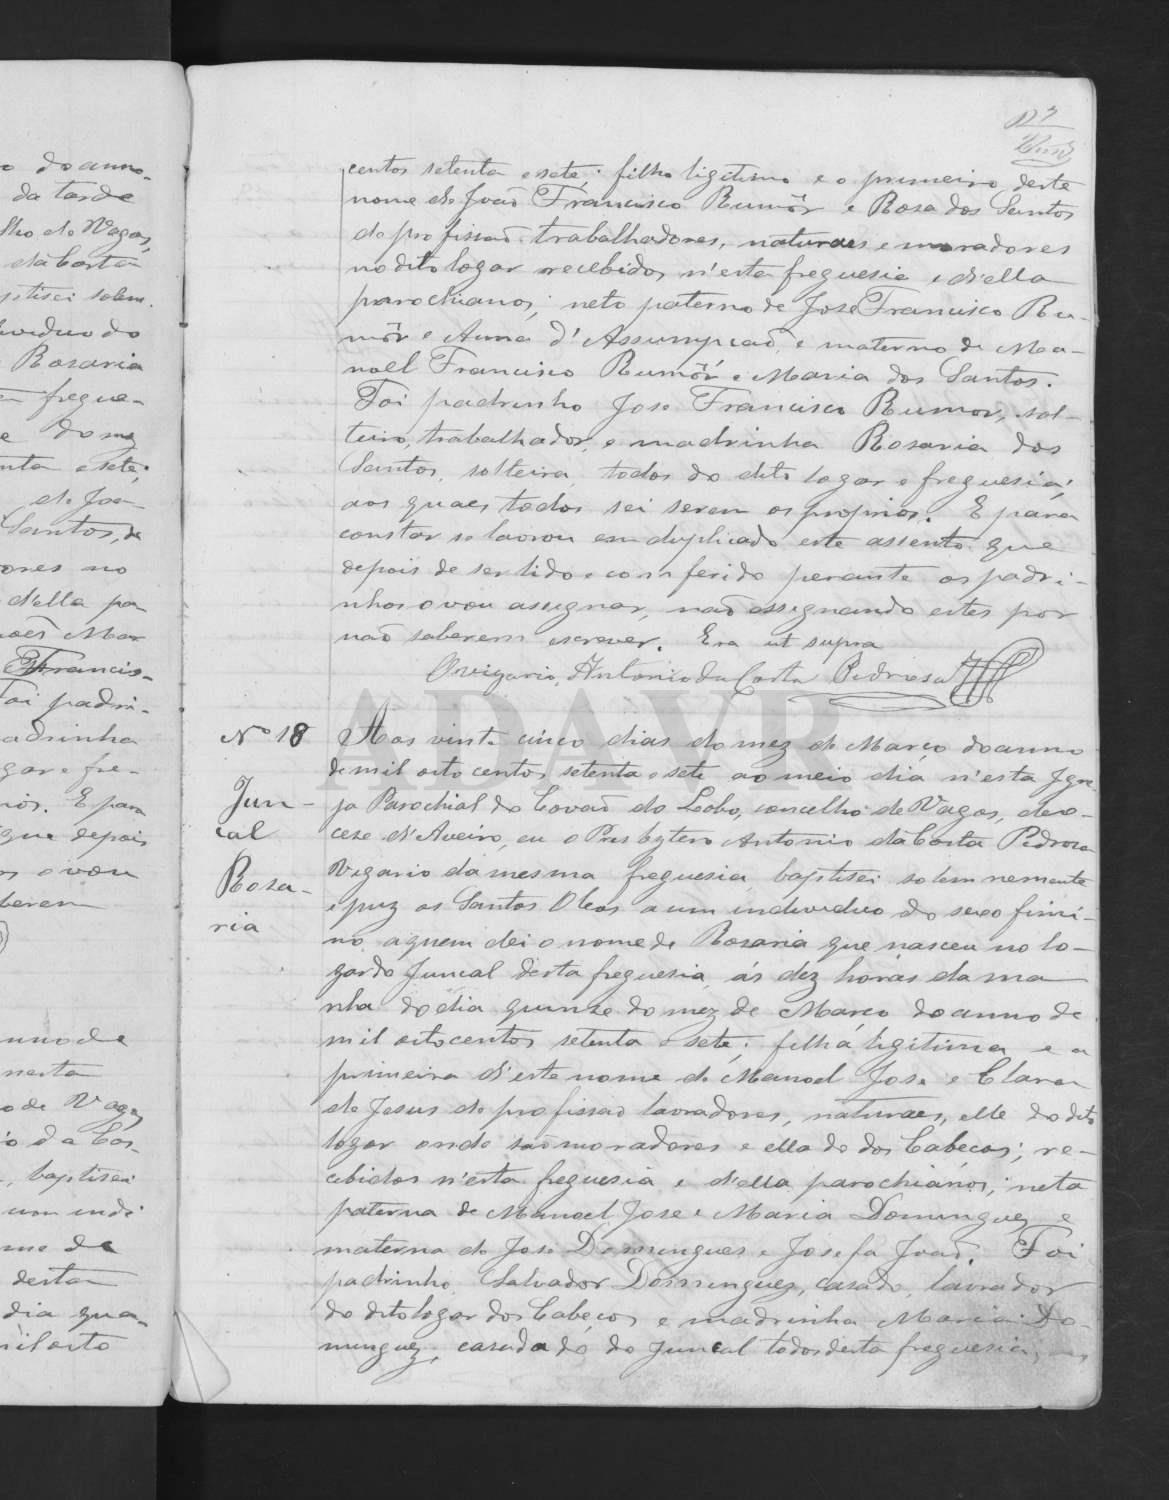 o do anno
da tarde
lho de Vagos,
da Costa
ptisei solem.
dividuo do
Rosaria
fregue-
e do mez
nta e sete;
de Joa-
Santos, de
ores no
d'ella pa-
Mar
Francis-
oi padri-
adrinha
gar e fre-
rios. E para
que depois
o vou
berem
centos setenta e sete: filho ligitimo e o primeiro deste
nome de João Francisco Rumôr e Rosa dos Santos
de profissão trabalhadores, naturaes e moradores
no dito logar recebidos n'esta freguesia e d'ella
parochianos; neto paterno de José Francisco Ru-
môr e Anna d'Assumpcaõ, e materno de Ma-
noel Francisco Rumôr e Maria dos Santos.
Foi padrinho Jose Francisco Rumor, sol-
teiro, trabalhador, e madrinha Rosaria dos
Santos, solteira, todos do dito logar e freguesia;
aos quaes todos sei serem os proprios. E para
constar se lavrou em duplicado este assento que
depois de ser lido e comferido perante os padri-
nhos o vou assignar, naõ assignando estes por
naõ saberem escrever. Era ut supra
O vigario, Antonio da Costa Pedrosa
ADAVR
Nº 18
Jun-
cal
Rosa-
ria
Aos vinte cinco dias do mez de Março do anno
de mil oito centos setenta e sete ao meio dia n'esta Igre-
ja Parochial do Covaõ do Lobo, concelho de Vagos, dio-
cese d'Aveiro, eu o Presbytero Antonio da Costa Pedrosa
Vigario da mesma freguesia, baptisei solemnemente
e puz os Santos Oleos a um individuo do sexo fimi-
no, a quem dei o nome de Rosaria que nasceu no lo-
gar do Juncal desta freguesia, ás dez horas da ma
nha do dia quinze do mez de Março do anno de
mil oitocentos setenta e sete; filha ligitima e a
primeira d'este nome de Manoel Jose e Clara
de Jesus de profissaõ lavradores, naturaes, elle do dito
logar onde saõ moradores e ella do dos Cabeços; re-
cebidos n'esta freguesia e d'ella parochianos; neta
paterna de Manoel Jose e Maria Domingues e
materna de José Domingues e Josefa Joaõ. Foi
padrinho Salvador Domingues, casado, lavrador
do dito logar dos Cabeços e madrinha Maria Do-
mingues, casada do do Juncal todos desta freguesia,
nno de
nesta
o de Vagos,
o da Cos-
, baptisei
um indi
me de
desta
dia qua-
mil oito